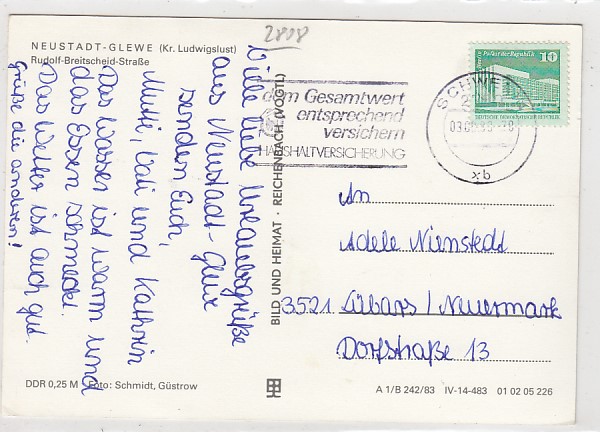 2808
NEUSTADT-GLEWE (Kr. Ludwigslust)
Rudolf-Breitscheid-Straße
Viele liebe Urlaubsgrüße
aus Neustadt-Glewe
senden Euch,
Mutti, Vati und Kathrin
Das Wasser ist warm und
das Essen schmeckt.
Das Wetter ist auch gut.
Grüße die anderen!
BILD UND HEIMAT · REICHENBACH (VOGTL)
dem Gesamtwert
entsprechend
versichern
HAUSHALTVERSICHERUNG
SCHWE
xb
Palast der Republik 10
DEUTSCHE DEMOKRATISCHE REPUBLIK
An
Adele Nienstedt
3521 Lübars / Neuermark
Dorfstraße 13
DDR 0,25 M Foto: Schmidt, Güstrow
A 1/B 242/83 IV-14-483 01 02 05 226